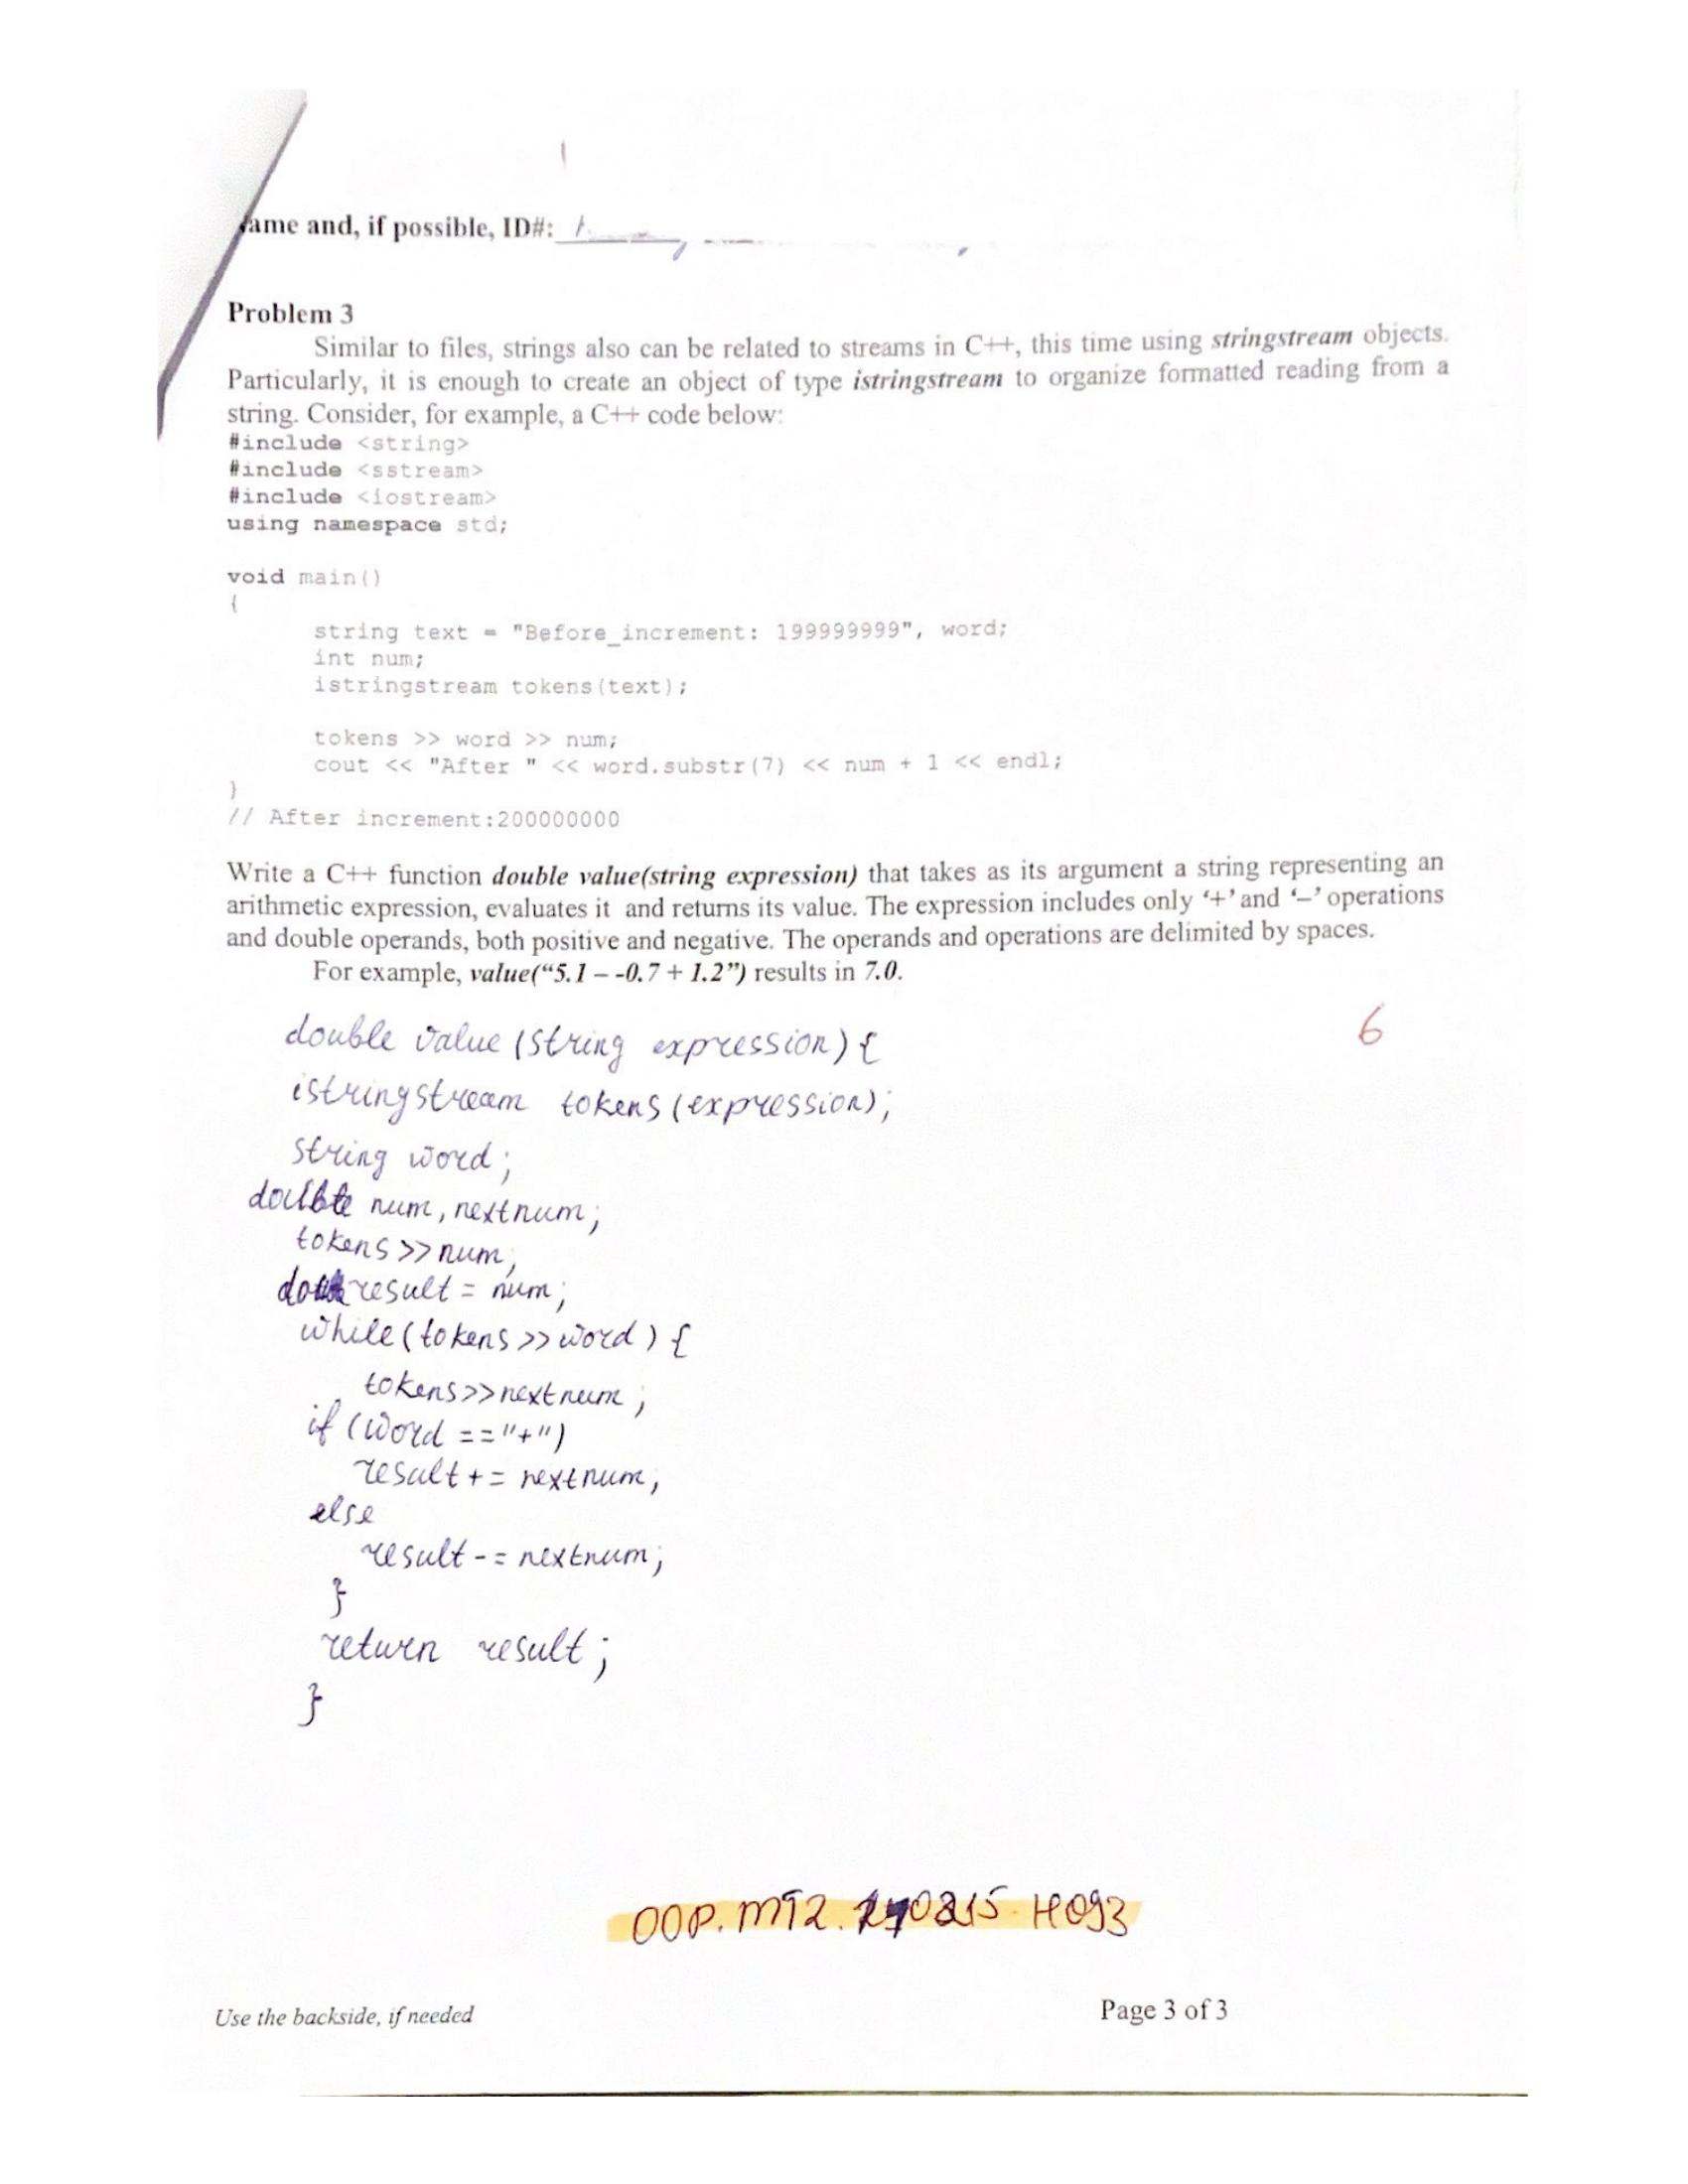 ame and, if possible, ID#:
Problem 3
Similar to files, strings also can be related to streams in C++, this time using stringstream objects.
Particularly, it is enough to create an object of type istringstream to organize formatted reading from a
string. Consider, for example, a C++ code below:
#include <string>
#include <sstream>
#include <iostream>
using namespace std;
void main()
{
string text = "Before_increment: 199999999", word;
int num;
istringstream tokens(text);
tokens >> word >> num;
cout << "After " << word.substr(7) << num + 1 << endl;
}
// After increment:200000000
Write a C++ function double value(string expression) that takes as its argument a string representing an
arithmetic expression, evaluates it and returns its value. The expression includes only ‘+’ and ‘–’ operations
and double operands, both positive and negative. The operands and operations are delimited by spaces.
For example, value(“5.1 – -0.7 + 1.2”) results in 7.0.
6
double value (string expression) {
istringstream tokens (expression);
string word;
double num, nextnum;
tokens >> num;
result = num;
while (tokens >> word) {
tokens >> nextnum;
if (word == "+")
result += nextnum;
else
result -= nextnum;
}
return result;
}
OOP.MT2. H093
Use the backside, if needed
Page 3 of 3